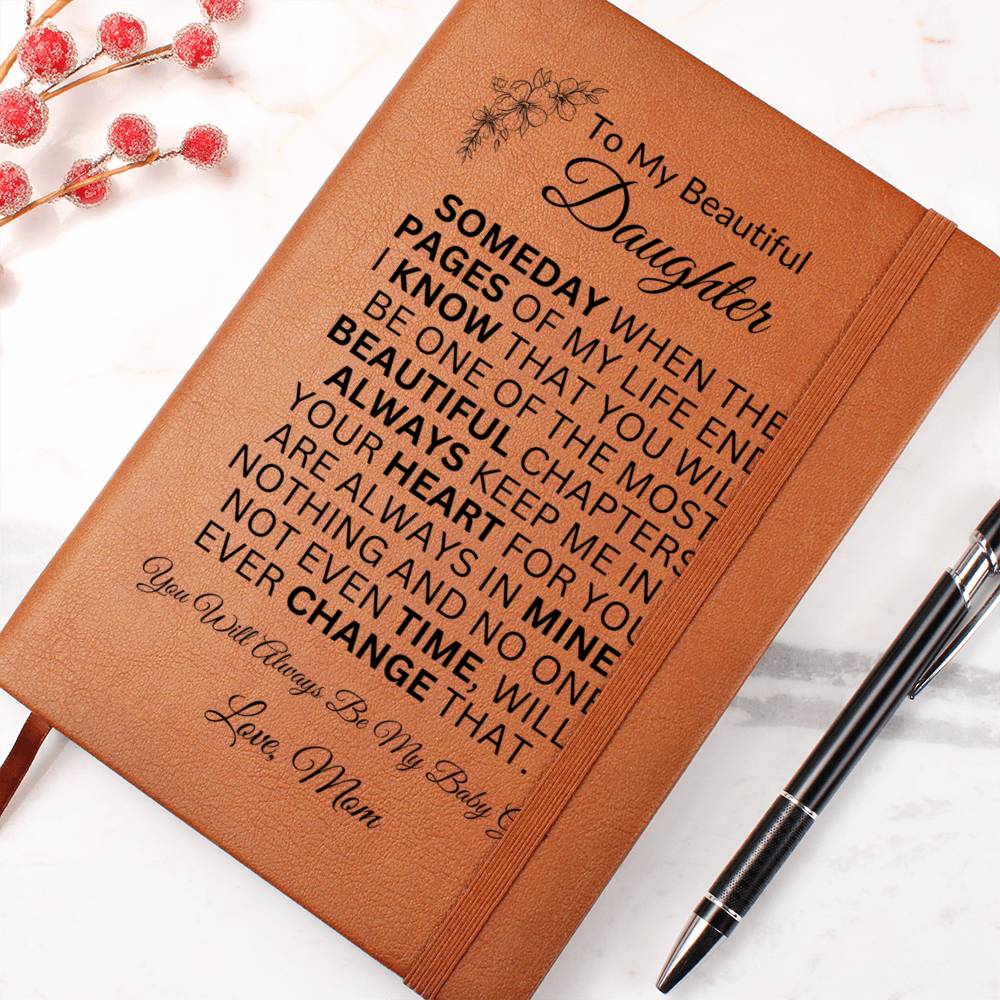 To My Beautiful
Daughter
SOMEDAY WHEN THE
PAGES OF MY LIFE END
I KNOW THAT YOU WILL
BE ONE OF THE MOST
BEAUTIFUL CHAPTERS
ALWAYS KEEP ME IN
YOUR HEART FOR YOU
ARE ALWAYS IN MINE
NOTHING AND NO ONE
NOT EVEN TIME, WILL
EVER CHANGE THAT.
You Will Always Be My Baby
Love, Mom